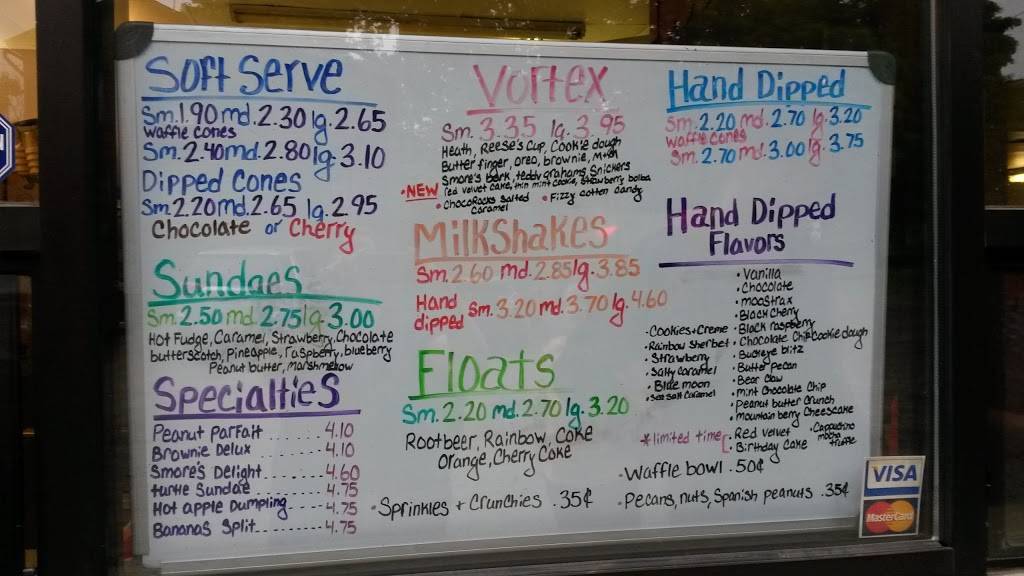 Soft Serve
Sm. 1.90 md. 2.30 lg. 2.65
Waffle Cones
Sm. 2.40 md. 2.80 lg. 3.10
Dipped Cones
Sm 2.20 md. 2.65 lg. 2.95
Chocolate or Cherry
Sundaes
Sm. 2.50 md. 2.75 lg 3.00
Hot Fudge, Caramel, Strawberry, Chocolate
butterscotch, Pineapple, raspberry, blueberry
Peanut butter, Marshmellow
Specialties
Peanut Parfait ...... 4.10
Brownie Delux ...... 4.10
Smore's Delight ...... 4.60
turtle Sundae ...... 4.75
Hot apple Dumpling ..... 4.75
Bananas Split ...... 4.75
Vortex
Sm. 3.35 lg. 3.95
Heath, Reese's Cup, Cookie dough
Butter finger, oreo, brownie, M+M
Smore's bark, teddy grahams, Snickers
•NEW red velvet cake, thin mint cookie, Strawberry
• ChocoRocks Salted Caramel • Fizzy cotton candy
Milkshakes
Sm. 2.60 md. 2.85 lg. 3.85
Hand dipped Sm. 3.20 md. 3.70 lg. 4.60
Floats
Sm. 2.20 md. 2.70 lg. 3.20
Rootbeer, Rainbow, Coke
Orange, Cherry Coke
• Sprinkles + Crunchies .35¢
Hand Dipped
Sm. 2.20 md. 2.70 lg. 3.20
Waffle Cones
Sm. 2.70 md. 3.00 lg. 3.75
Hand Dipped
Flavors
• Vanilla
• Chocolate
• moostrax
• Black Cherry
• Cookies + Creme • Black raspberry
• Rainbow Sherbet • Chocolate Chip Cookie dough
• Strawberry • Buckeye blitz
• Salty Caramel • Butter pecan
• Blue moon • Bear Claw
• Sea Salt Caramel • Mint Chocolate Chip
• Peanut butter Crunch
• Mountain berry Cheesecake
* limited time [ • Red Velvet • Cappuccino
• Birthday Cake mocha truffle
• Waffle bowl .50¢
• Pecans, nuts, Spanish peanuts .35¢
VISA
MasterCard